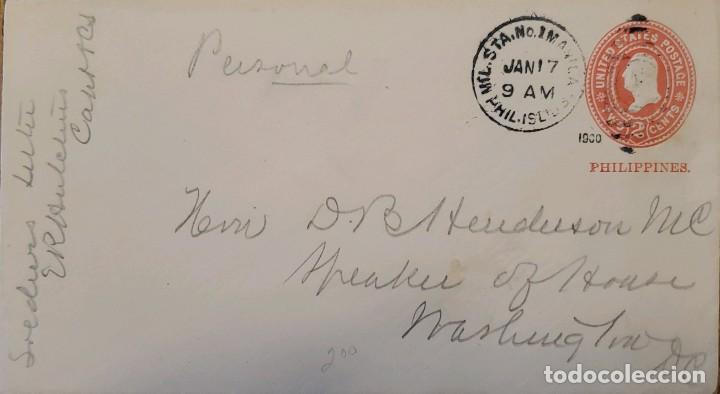 Personal
MIL. STA. No. 1 MANILA
JAN 17
9 AM
PHIL. ISL'DS
1900
UNITED STATES POSTAGE
TWO 2 CENTS
PHILIPPINES.
Hon D. B. Henderson MC
Speaker of House
Washington
DC
Soldiers Letter
E R Hutchins
Capt
200
todocoleccion.net